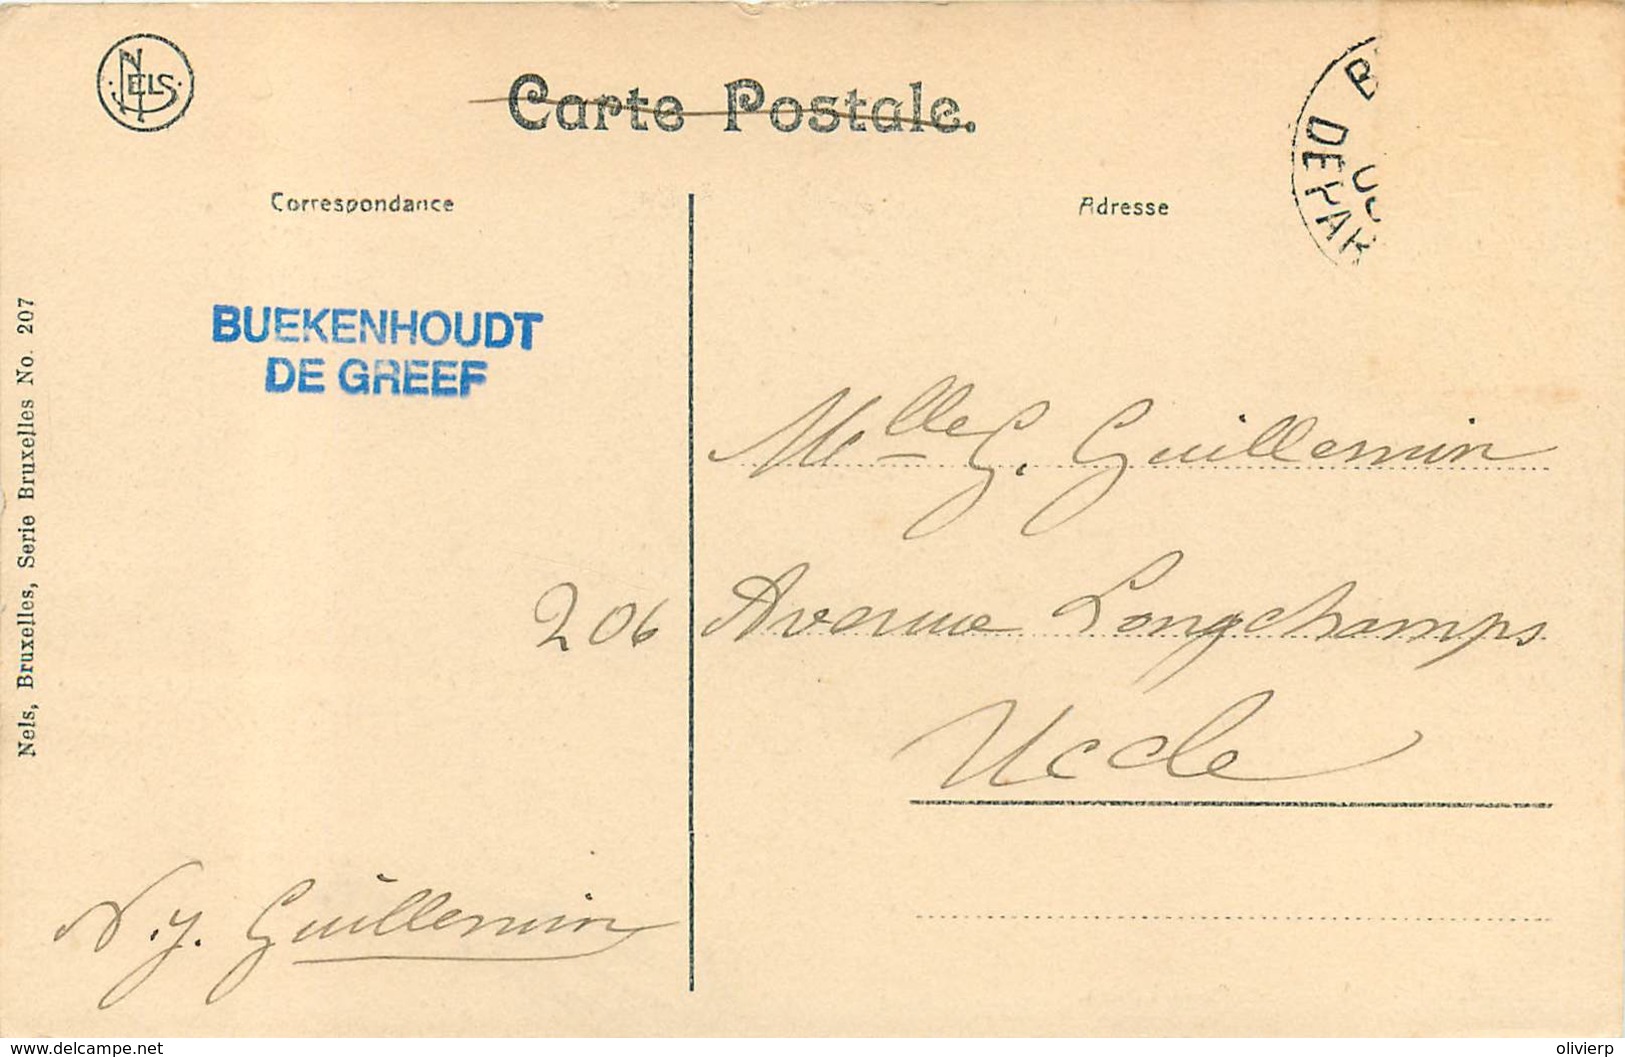 NELS
Carte Postale.
Correspondance
Adresse
DEPAR
BUEKENHOUDT
DE GREEF
Nels, Bruxelles, Serie Bruxelles No. 207
Melle G. Guillemin
206 Avenue Longchamps
Uccle
N.J. Guillemin
www.delcampe.net
olivierp